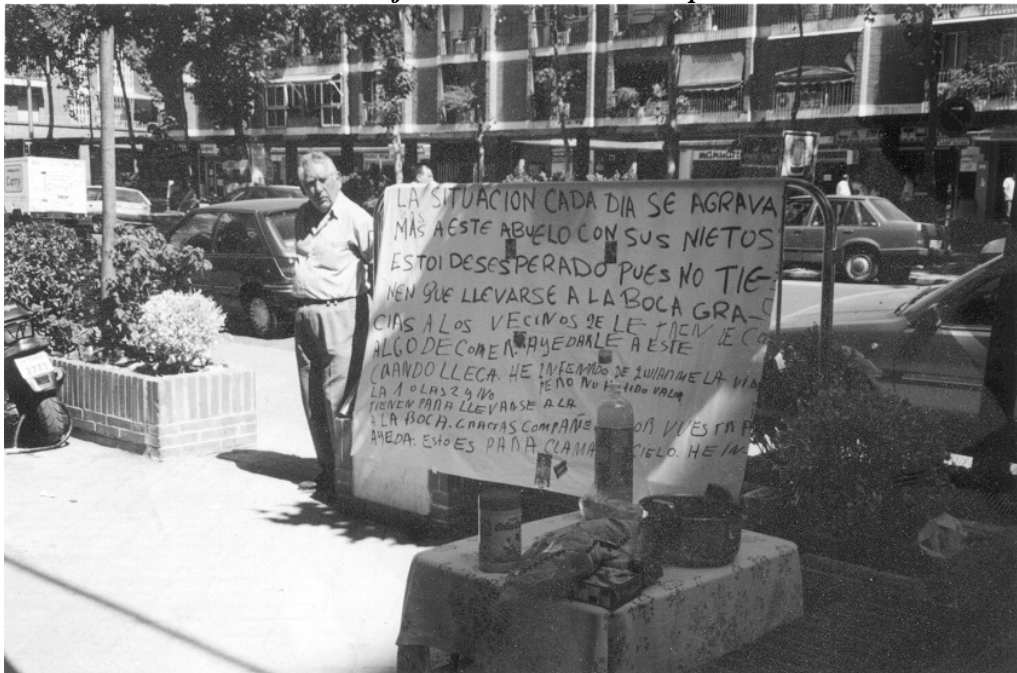 LA SITUACION CADA DIA SE AGRAVA
MÁS A ESTE ABUELO CON SUS NIETOS
ESTOI DESESPERADO PUES NO TIE-
NEN QUE LLEVARSE A LA BOCA GRA-
CIAS A LOS VECINOS QE LE TREN DE CO
ALGO DE COMER. AYEDARLE A ESTE
CUANDO LLEGA. HE INTENTADO DE QUITARME LA VID
LA 1 O LAS 2 Y NO PERO NO HE TIDO VALOR
TIENEN PARA LLEVARSE A LA
A LA BOCA. GRACIAS COMPAÑE OR VUESTRA
AYEDA. ESTO ES PARA CLAMA CIELO. HE IN